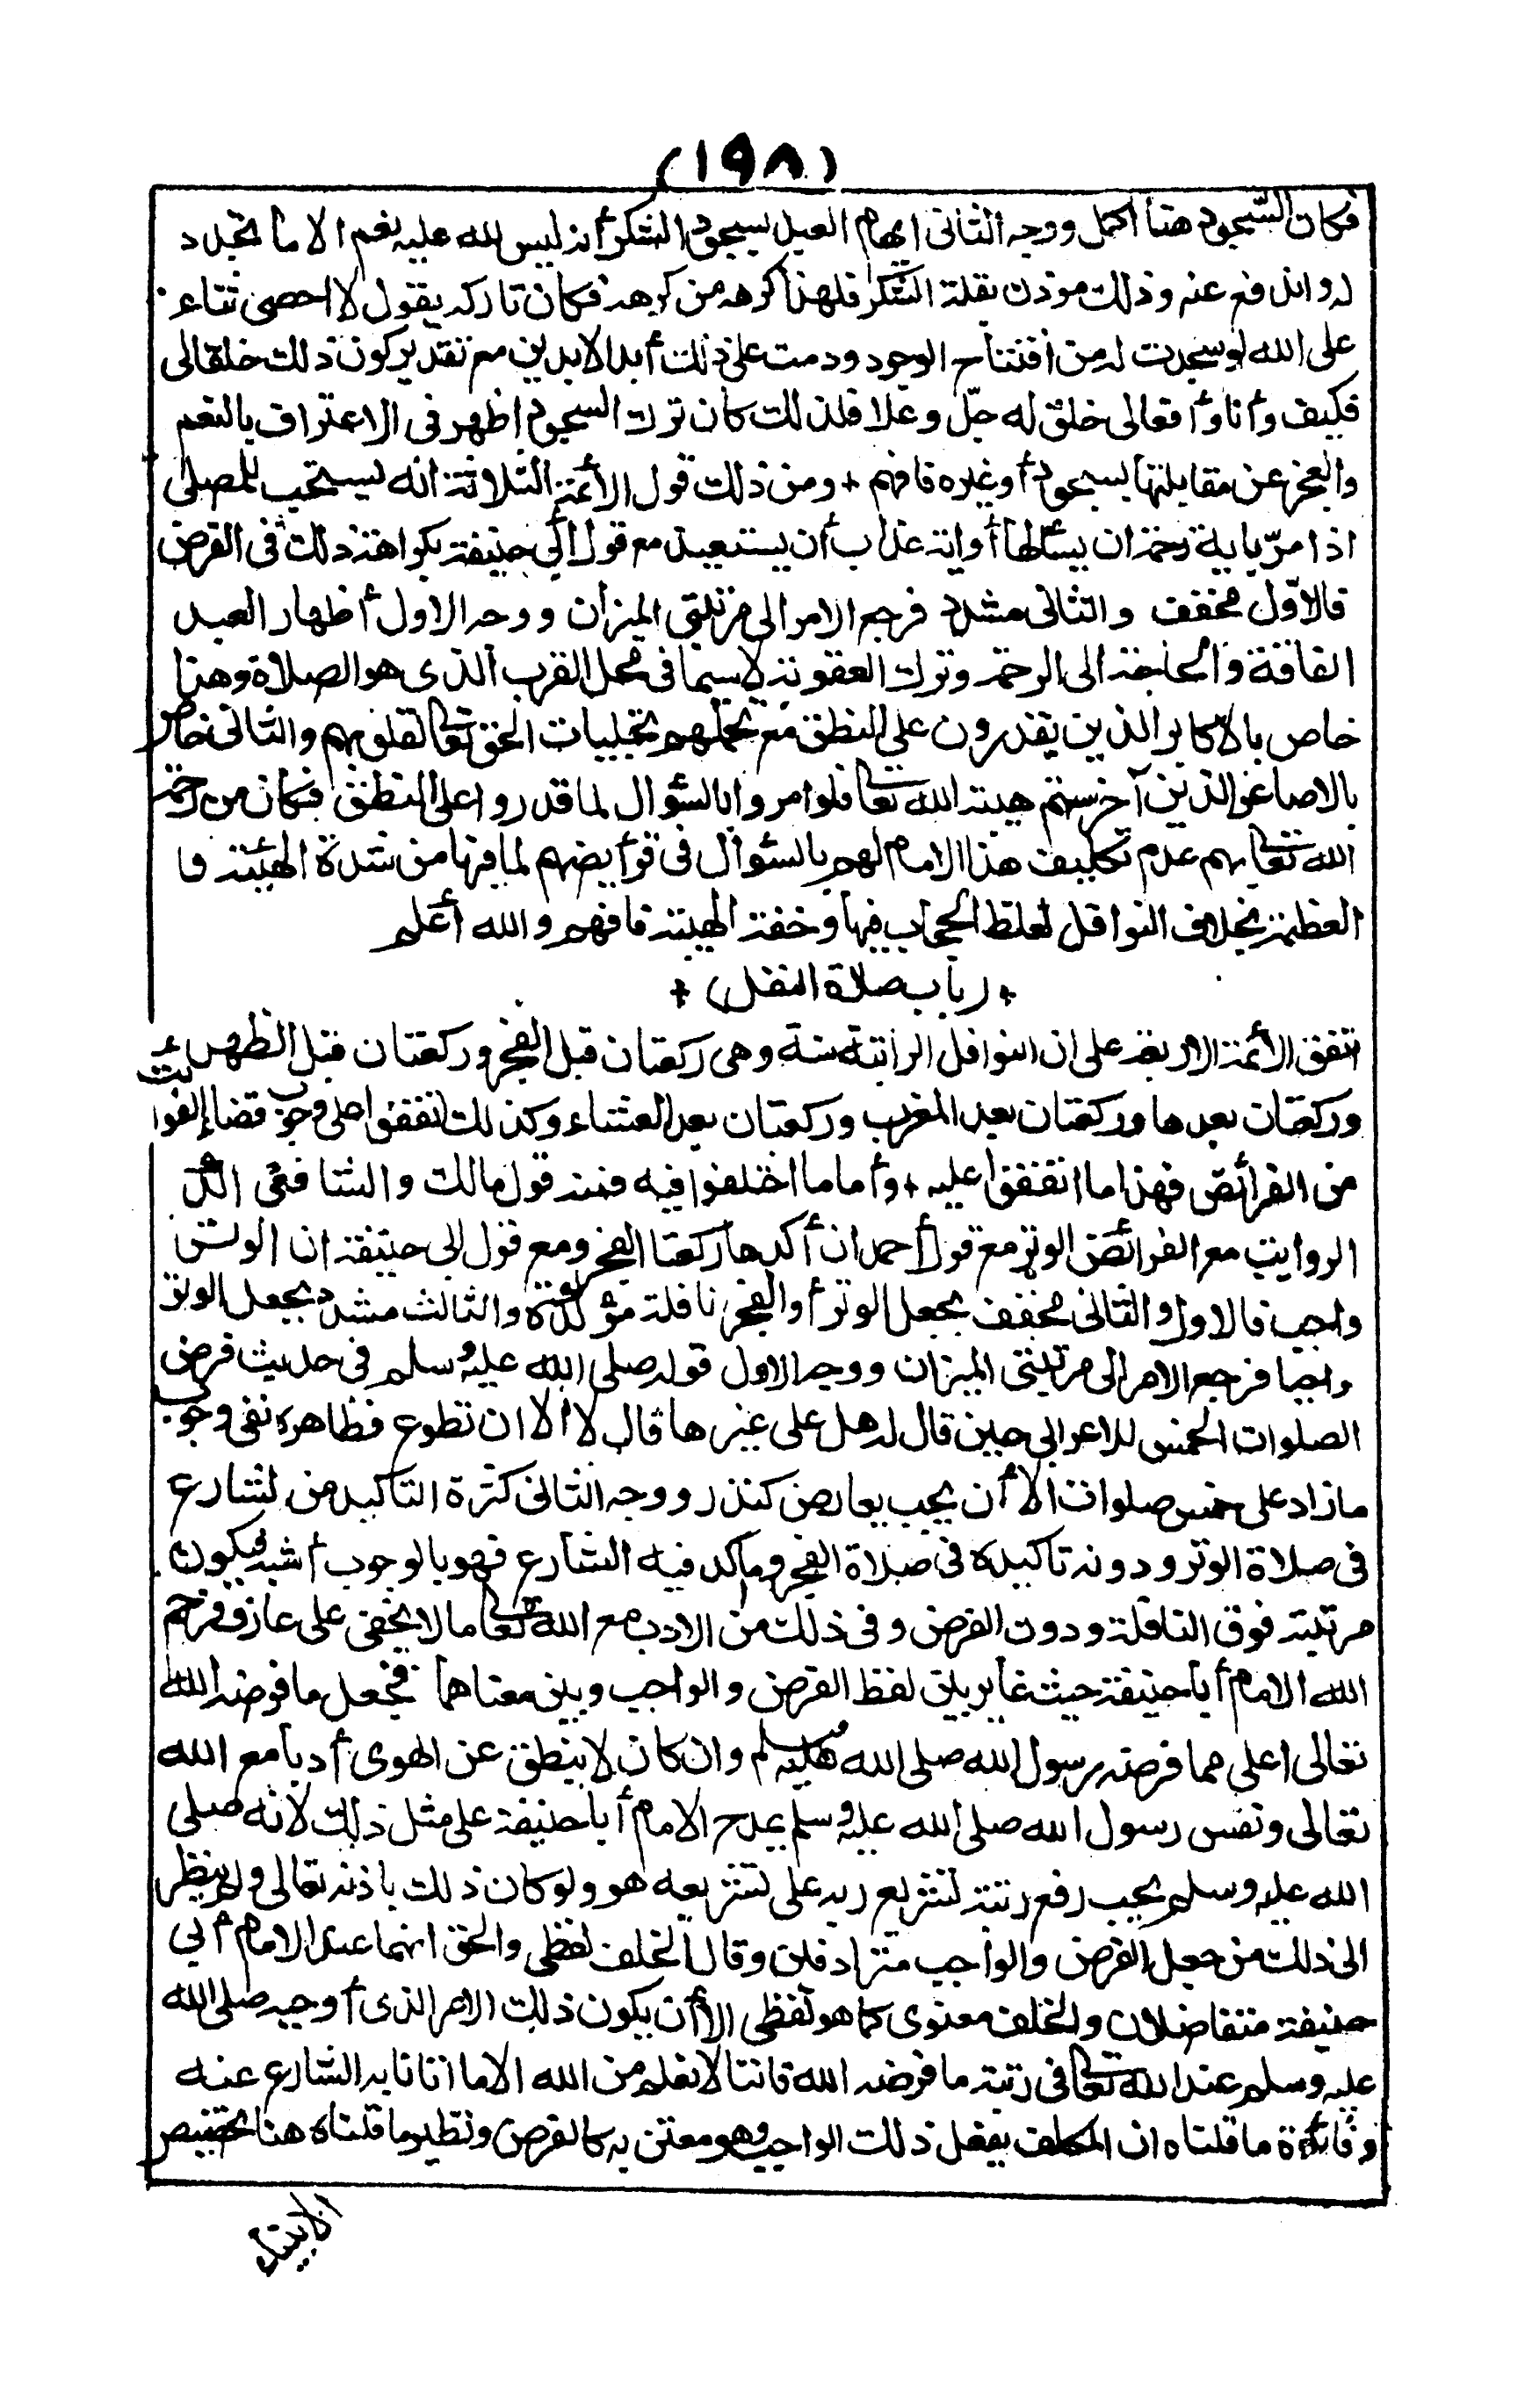 (١٩٨)
فكان السجود هنا أكمل ووجه الثانى ايهام العبد بسجود الشكر أنه ليس لله عليه نعم الا ما تجدد
له واندفع عنه وذلك موذن بقلة الشكر فلهذا كرهه من كرهه فكان تاركه يقول لا احصى ثناء
على الله لو سجدت له من افتتاح الوجود ودمت على ذلك أبد الابدين مع تقدير كون ذلك خلقا لى
فكيف وأنا وأفعالى خلق له جلّ وعلا فلذلك كان ترك السجود اظهر فى الاعتراف بالنعم
والعجز عن مقابلتها بسجود أو غيره فافهم + ومن ذلك قول الأئمة الثلاثة انه يستحب للمصلى
اذا مرّ باية رحمة ان يسألها أو اية عذاب أن يستعيذ مع قول أبي حنيفة بكراهة ذلك فى الفرض
فالاوّل مخفف والثانى مشدد فرجع الامر الى مرتبتى الميزان ووجه الاول أظهار العبد
الفاقة والحاجة الى الرحمة وترك العقوبة لاسيما فى محل القرب الذى هو الصلاة وهذا
خاص بالاكابر الذين يقدرون على النطق مع تحملهم تجليات الحق تعالى لقلوبهم والثانى خاص
بالاصاغر الذين أخرستهم هيبة الله تعالى فلو امروا بالسؤال لما قدروا على النطق فكان من رحمة
الله تعالى بهم عدم تكليف هذا الامام لهم بالسؤال فى فرأيضهم لما فيها من شدة الهيبة و
العظمة بخلاف النوافل لغلظ الحجاب فيها وخفة الهيبة فافهم والله أعلم
+ (باب صلاة النفل) +
اتفق الأئمة الاربعة على ان النوافل الراتبة سنة وهى ركعتان قبل الفجر وركعتان قبل الظهر
وركعتان بعدها وركعتان بعد المغرب وركعتان بعد العشاء وكذلك اتفقوا على وجوب قضاء الفوائت
من الفرائض فهذا ما اتفقوا عليه + وأما ما اختلفوا فيه فمنه قول مالك والشافعى ان آكد
الرواتب مع الفرائض الوتر مع قول أحمد ان أكدها ركعتا الفجر ومع قول ابى حنيفة ان الوتر
واجب فالاول والثانى مخفف بجعل الوتر أو الفجر نافلة مؤكدة والثالث مشدد بجعل الوتر
واجبا فرجع الامر الى مرتبتى الميزان ووجه الاول قوله صلى الله عليه وسلم فى حديث فرض
الصلوات الخمس للاعرابى حين قال له هل على غيرها قال لا ألا ان تطوع فظاهره نفى وجوب
ما زاد على خمس صلوات الا أن يجب بعارض كنذر ووجه الثانى كثرة التاكيد من الشارع
فى صلاة الوتر ودونه تاكيده فى صلاة الفجر وما أكد فيه الشارع فهو بالوجوب أشبه فيكون
مرتبته فوق النافلة ودون الفرض وفى ذلك من الادب مع الله تعالى ما لا يخفى على عارف فرحم
الله الامام أبا حنيفة حيث غاير بين لفظ الفرض والواجب وبين معناهما فجعل ما فرضه الله
تعالى اعلى مما فرضه رسول الله صلى الله عليه وسلم وان كان لا ينطق عن الهوى أدبا مع الله
تعالى ونفس رسول الله صلى الله عليه وسلم يمدح الامام أبا حنيفة على مثل ذلك لانه صلى
الله عليه وسلم يحب رفع رتبة تشريع ربه على تشريعه هو ولو كان ذلك باذنه تعالى ولم ينظر
الى ذلك من جعل الفرض والواجب مترادفين وقال الخلف لفظى والحق انهما عند الامام أبي
حنيفة متفاضلان والخلف معنوى كما هو لفظى الا أن يكون ذلك الامر الذى أوجبه صلى الله
عليه وسلم عند الله تعالى فى رتبة ما فرضه الله فاننا لا نعلم من الله الا ما اتانا به الشارع عنه
وفائدة ما قلناه ان المكلف بفعل ذلك الواجب وهو معتن به كالفرض ونظير ما قلناه هنا تخصيص
الانبياء